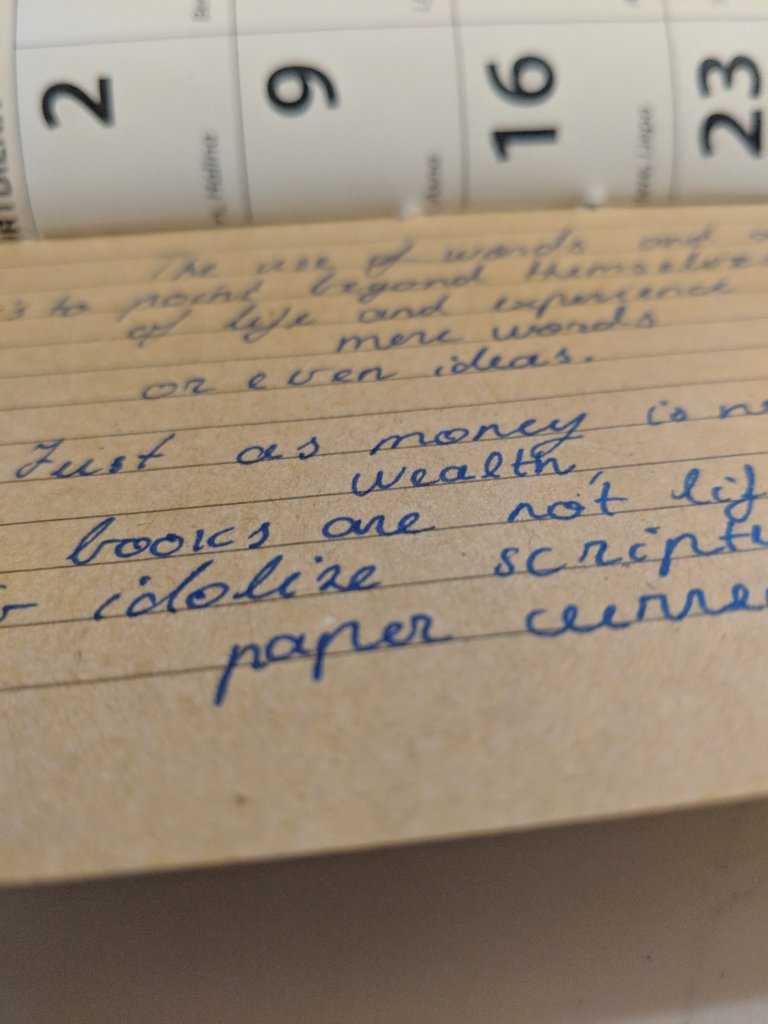 2 9 16 23
The use of words and
is to point beyond themselves
of life and experience
mere words
or even ideas.
Just as money is
wealth,
books are not
idolize
paper